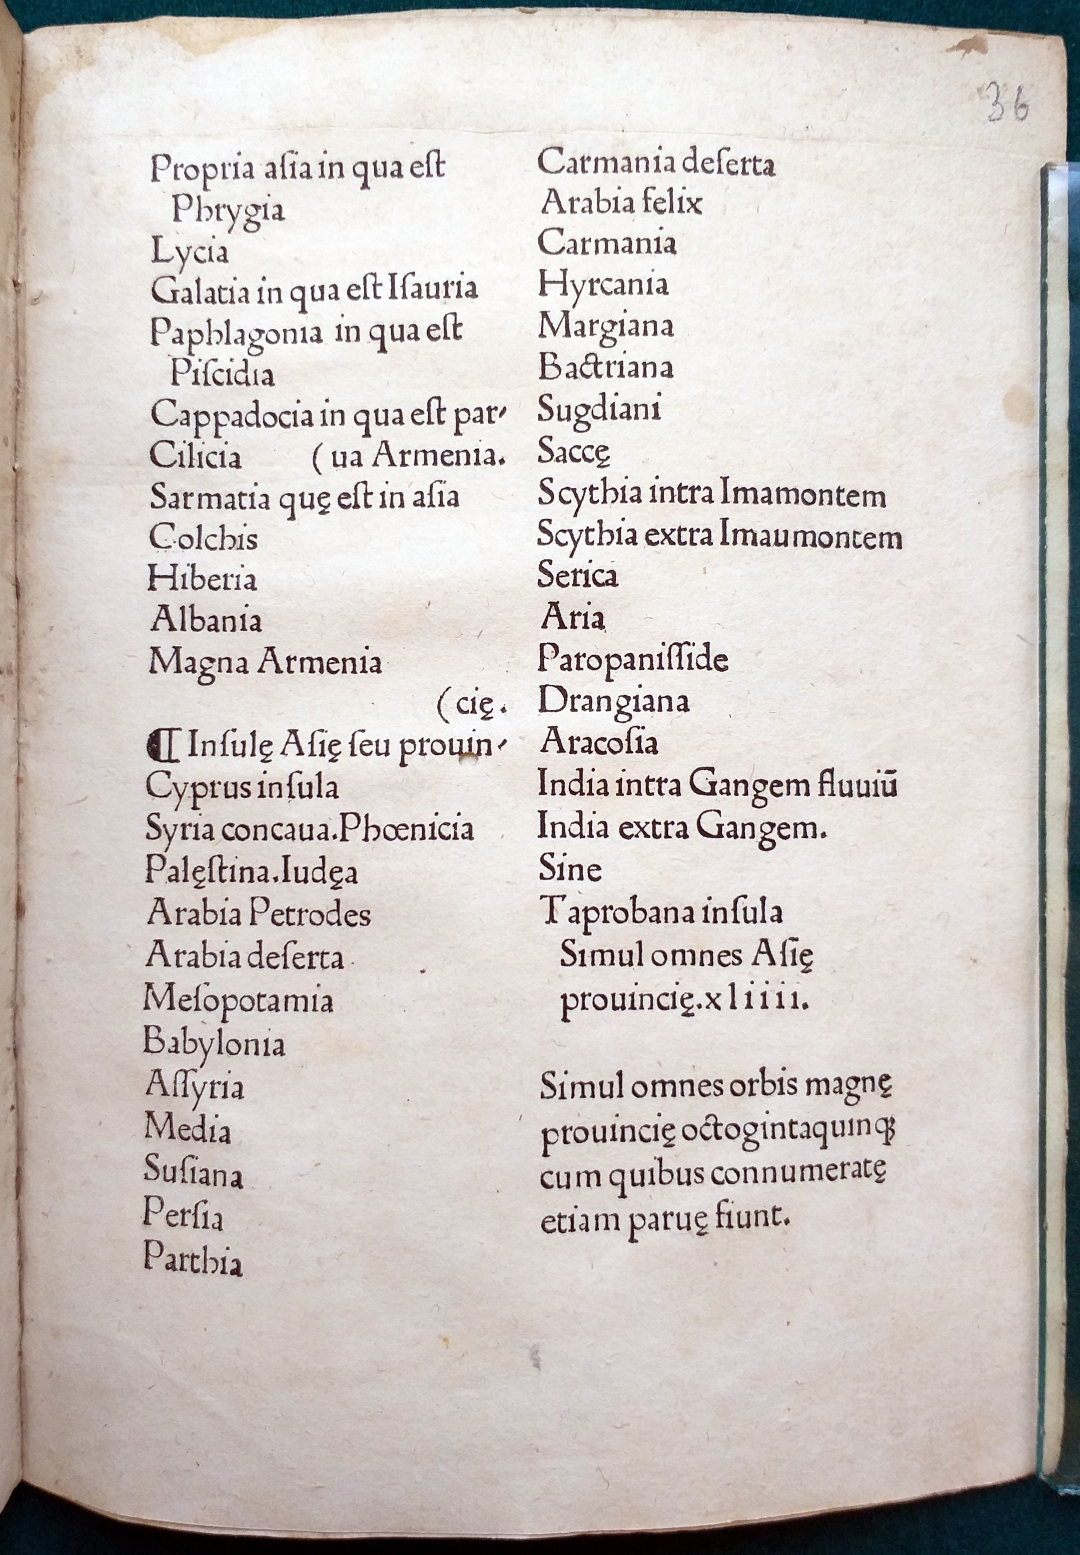 36
Propria aſia in qua eſt
Phrygia
Lycia
Galatia in qua eſt Iſauria
Paphlagonia in qua eſt
Piſcidia
Cappadocia in qua eſt par⸗
Cilicia (ua Armenia.
Sarmatia quę eſt in aſia
Colchis
Hiberia
Albania
Magna Armenia
(cię.
¶ Inſulę Aſię ſeu prouin⸗
Cyprus inſula
Syria concaua.Phœnicia
Palęſtina.Iudęa
Arabia Petrodes
Arabia deſerta
Meſopotamia
Babylonia
Aſſyria
Media
Suſiana
Perſia
Parthia
Carmania deſerta
Arabia felix
Carmania
Hyrcania
Margiana
Bactriana
Sugdiani
Saccę
Scythia intra Imamontem
Scythia extra Imaumontem
Serica
Aria
Paropaniſſide
Drangiana
Aracoſia
India intra Gangem fluuiū
India extra Gangem.
Sine
Taprobana inſula
Simul omnes Aſię
prouincię.xliiii.
Simul omnes orbis magnę
prouincię octogintaquinqꝫ
cum quibus connumeratę
etiam paruę fiunt.